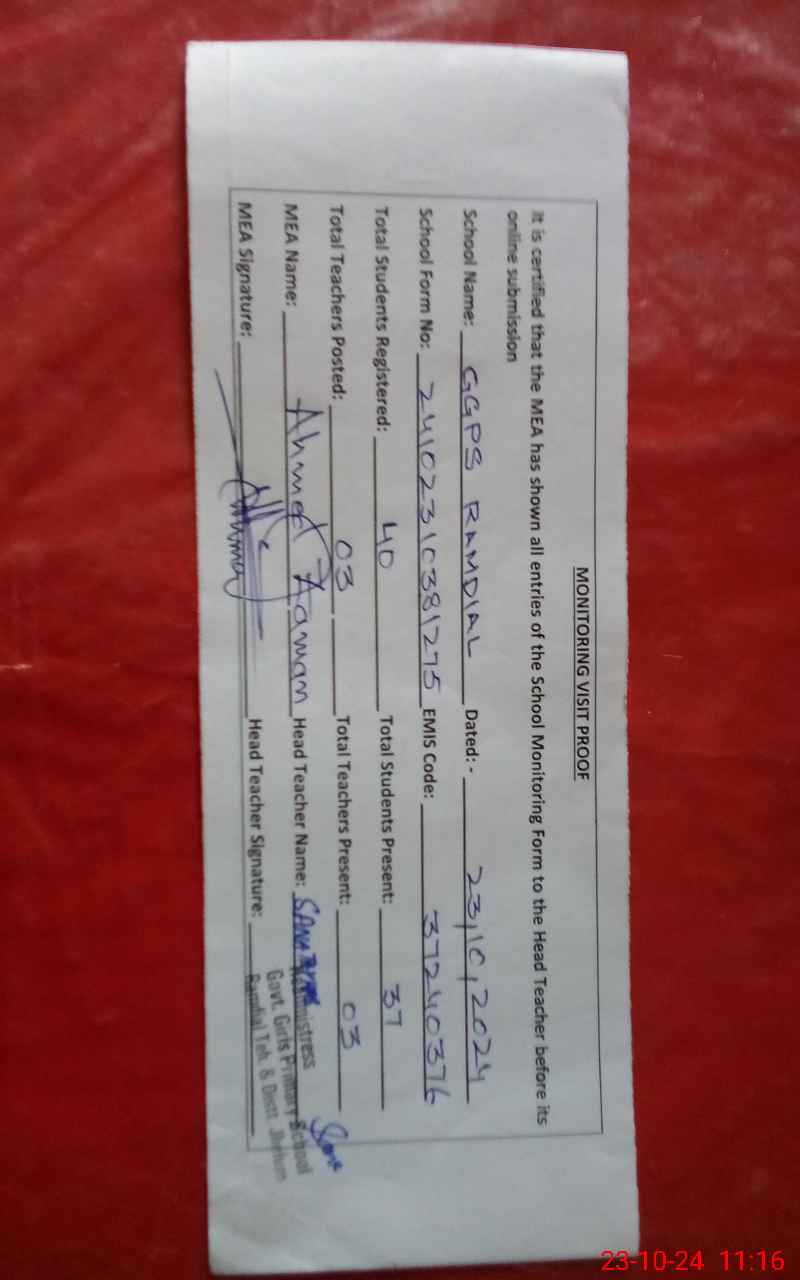 MONITORING VISIT PROOF
It is certified that the MEA has shown all entries of the School Monitoring Form to the Head Teacher before its
online submission
School Name: GGPS RAMDIAL Dated: - 23,10,2024
School Form No: 24102310381275 EMIS Code: 37240376
Total Students Registered: 40 Total Students Present: 37
Total Teachers Posted: 03 Total Teachers Present: 03
MEA Name: Ahmed Head Teacher Name: SANA
MEA Signature: Head Teacher Signature:
Govt. Girls Primary School
Ramdial Teh. & Distt. Jhelum
23-10-24 11:16